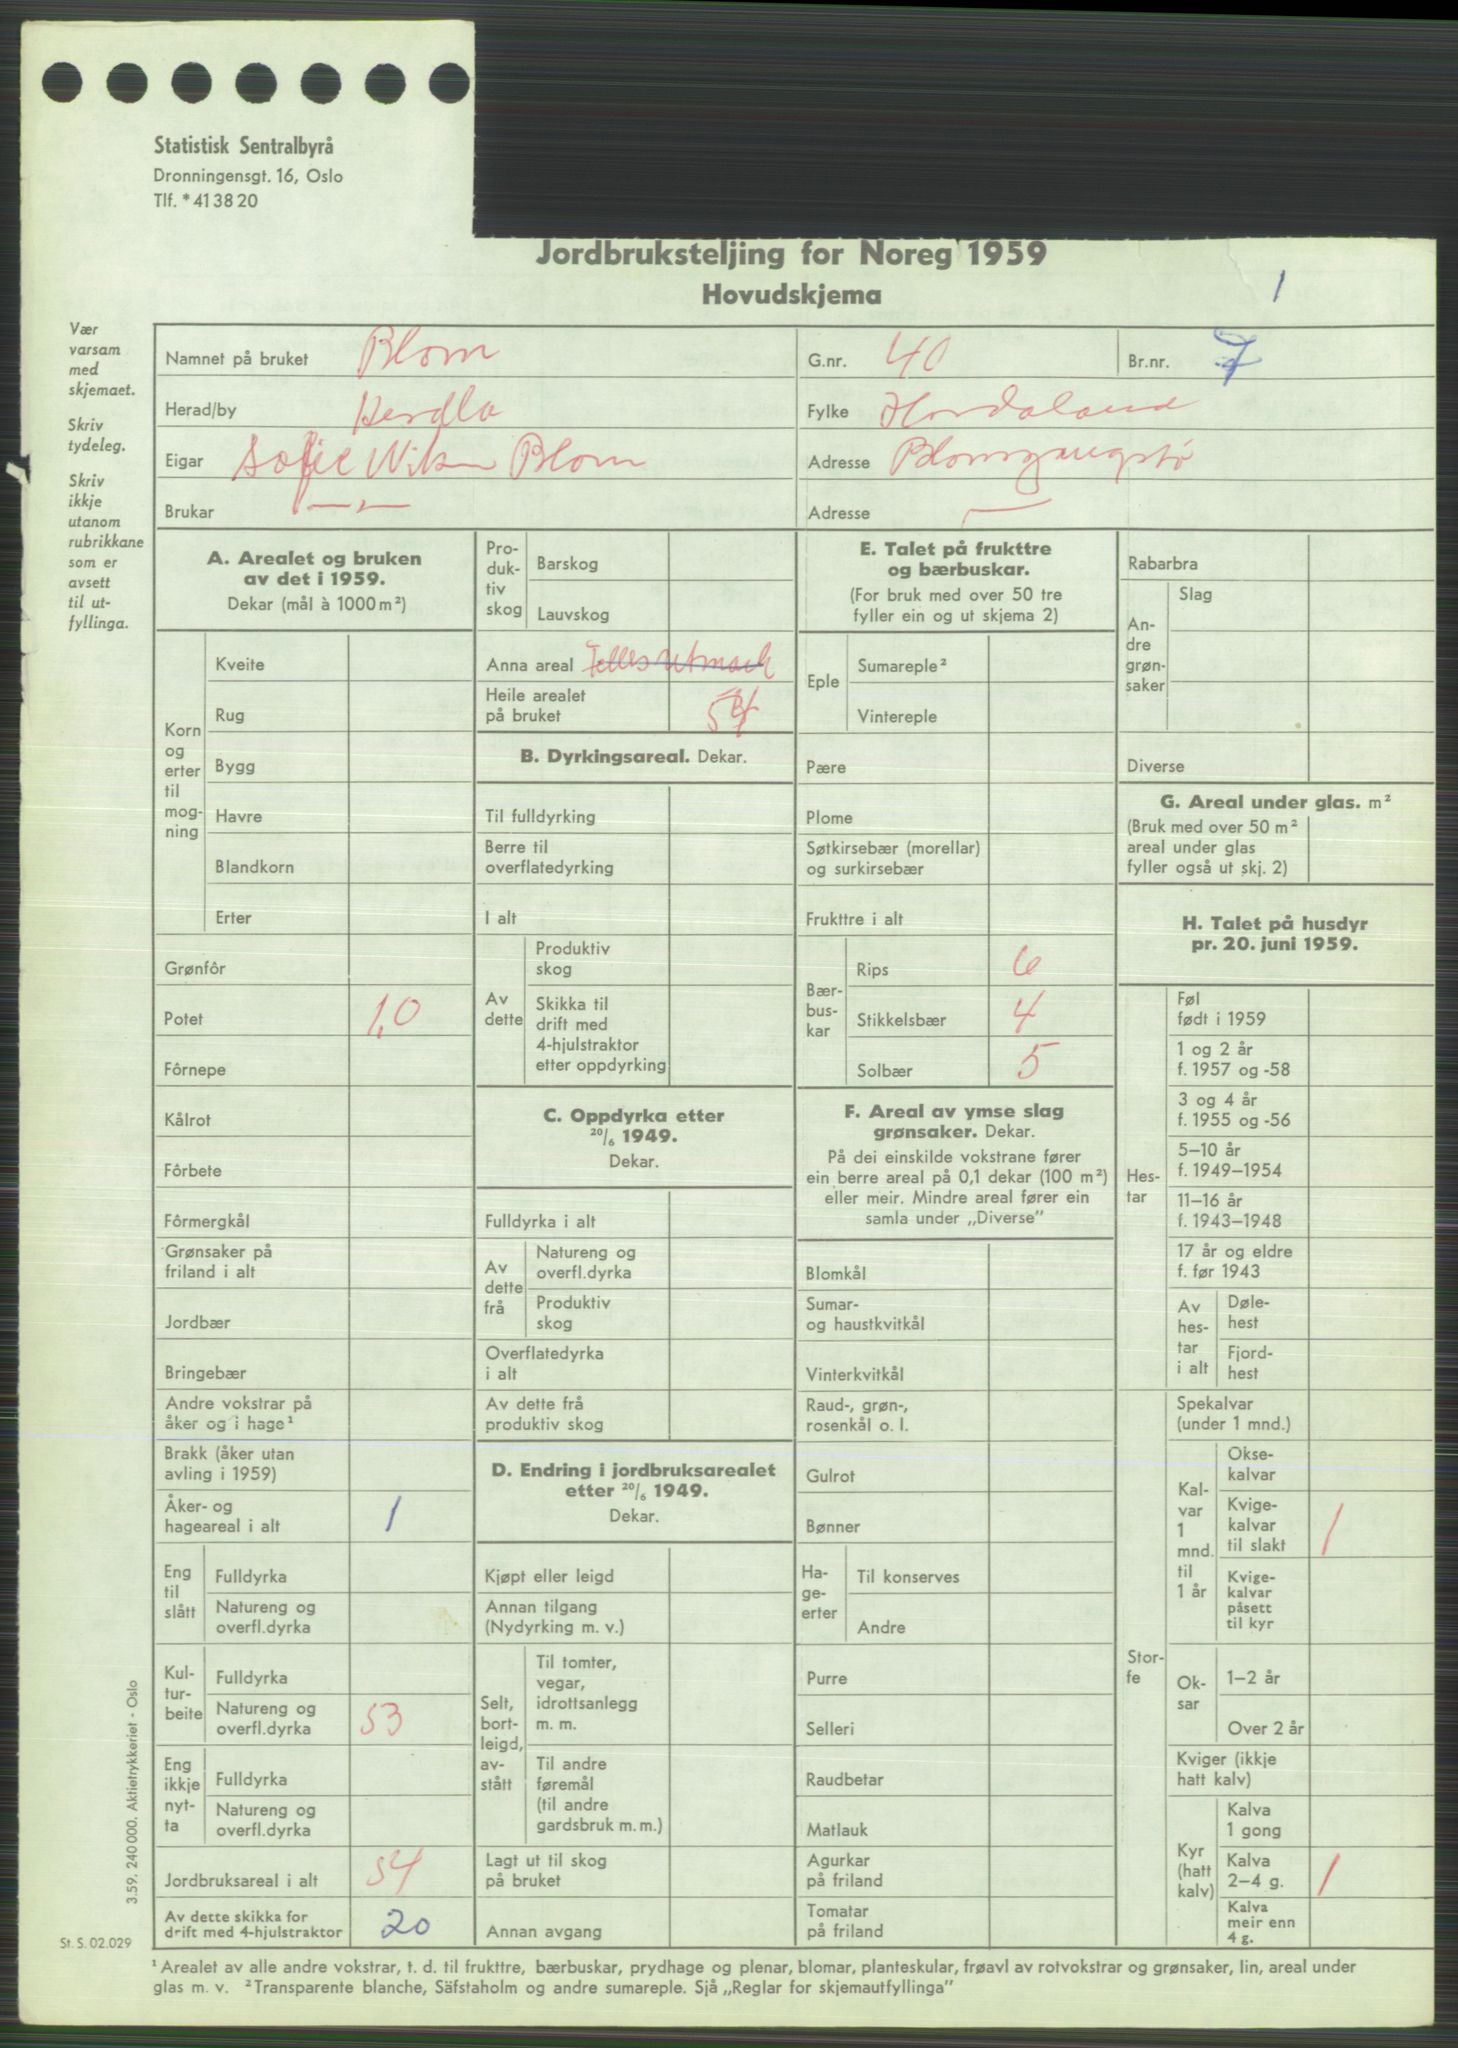 Statistisk Sentralbyrå
Dronningensgt. 16, Oslo
Tlf. * 41 38 20
Jordbruksteljing for Noreg 1959
Hovudskjema
1
Vær
varsam
med
skjemaet.
Skriv
tydeleg.
Skriv
ikkje
utanom
rubrikkane
som er
avsett
til ut-
fyllinga.
Namnet på bruket Blom
G.nr. 40
Br.nr. 7
Herad/by Herdla
Fylke Hordaland
Eigar Sofie Blom
Adresse
Brukar — " —
Adresse —
A. Arealet og bruken
av det i 1959.
Dekar (mål à 1000 m²)
Korn
og
erter
til
mog-
ning
Kveite
Rug
Bygg
Havre
Blandkorn
Erter
Grønfôr
Potet 1,0
Fôrnepe
Kålrot
Fôrbete
Fôrmergkål
Grønsaker på
friland i alt
Jordbær
Bringebær
Andre vokstrar på
åker og i hage¹
Brakk (åker utan
avling i 1959)
Åker- og
hageareal i alt 1
Eng
til
slått
Fulldyrka
Natureng og
overfl.dyrka
Kul-
tur-
beite
Fulldyrka
Natureng og
overfl.dyrka 53
Eng
ikkje
nyt-
ta
Fulldyrka
Natureng og
overfl.dyrka
Jordbruksareal i alt 54
Av dette skikka for
drift med 4-hjulstraktor 20
Pro-
duk-
tiv
skog
Barskog
Lauvskog
Anna areal Felles utmark
Heile arealet
på bruket 54
B. Dyrkingsareal. Dekar.
Til fulldyrking
Berre til
overflatedyrking
I alt
Av
dette
Produktiv
skog
Skikka til
drift med
4-hjulstraktor
etter oppdyrking
C. Oppdyrka etter
20/6 1949.
Dekar.
Fulldyrka i alt
Av
dette
frå
Natureng og
overfl.dyrka
Produktiv
skog
Overflatedyrka
i alt
Av dette frå
produktiv skog
D. Endring i jordbruksarealet
etter 20/6 1949.
Dekar.
Kjøpt eller leigd
Annan tilgang
(Nydyrking m. v.)
Selt,
bort-
leigd,
av-
stått
Til tomter,
vegar,
idrottsanlegg
m. m.
Til andre
føremål
(til andre
gardsbruk m. m.)
Lagt ut til skog
på bruket
Annan avgang
E. Talet på frukttre
og bærbuskar.
(For bruk med over 50 tre
fyller ein og ut skjema 2)
Eple
Sumareple²
Vintereple
Pære
Plome
Søtkirsebær (morellar)
og surkirsebær
Frukttre i alt
Bær-
bus-
kar
Rips 6
Stikkelsbær 4
Solbær 5
F. Areal av ymse slag
grønsaker. Dekar.
På dei einskilde vokstrane fører
ein berre areal på 0,1 dekar (100 m²)
eller meir. Mindre areal fører ein
samla under „Diverse”
Blomkål
Sumar-
og haustkvitkål
Vinterkvitkål
Raud-, grøn-,
rosenkål o. l.
Gulrot
Bønner
Ha-
ge-
erter
Til konserves
Andre
Purre
Selleri
Raudbetar
Matlauk
Agurkar
på friland
Tomatar
på friland
Rabarbra
An-
dre
grøn-
saker
Slag
Diverse
G. Areal under glas. m²
(Bruk med over 50 m²
areal under glas
fyller også ut skj. 2)
H. Talet på husdyr
pr. 20. juni 1959.
Hes-
tar
Føl
født i 1959
1 og 2 år
f. 1957 og -58
3 og 4 år
f. 1955 og -56
5–10 år
f. 1949–1954
11–16 år
f. 1943–1948
17 år og eldre
f. før 1943
Av
hes-
tar
i alt
Døle-
hest
Fjord-
hest
Stor-
fe
Spekalvar
(under 1 mnd.)
Kal-
var
1
mnd.
til
1 år
Okse-
kalvar
Kvige-
kalvar
til slakt 1
Kvige-
kalvar
påsett
til kyr
Ok-
sar
1–2 år
Over 2 år
Kviger (ikkje
hatt kalv)
Kyr
(hatt
kalv)
Kalva
1 gong
Kalva
2–4 g. 1
Kalva
meir enn
4 g.
3.59. 240 000. Aktietrykkeriet - Oslo
St. S. 02.029
¹ Arealet av alle andre vokstrar, t. d. til frukttre, bærbuskar, prydhage og plenar, blomar, planteskular, frøavl av rotvokstrar og grønsaker, lin, areal under
glas m. v. ² Transparente blanche, Säfstaholm og andre sumareple. Sjå „Reglar for skjemautfyllinga”